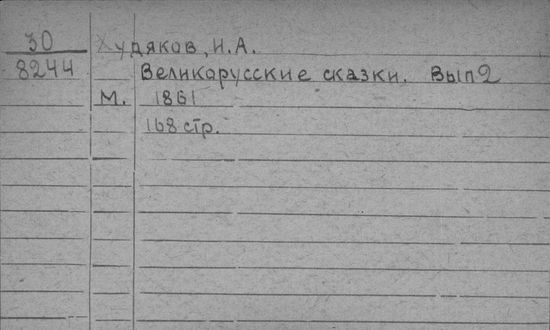 30 Худяков, И.А.
8244 Великорусские сказки. Вып 2
М. 1861
168 стр.